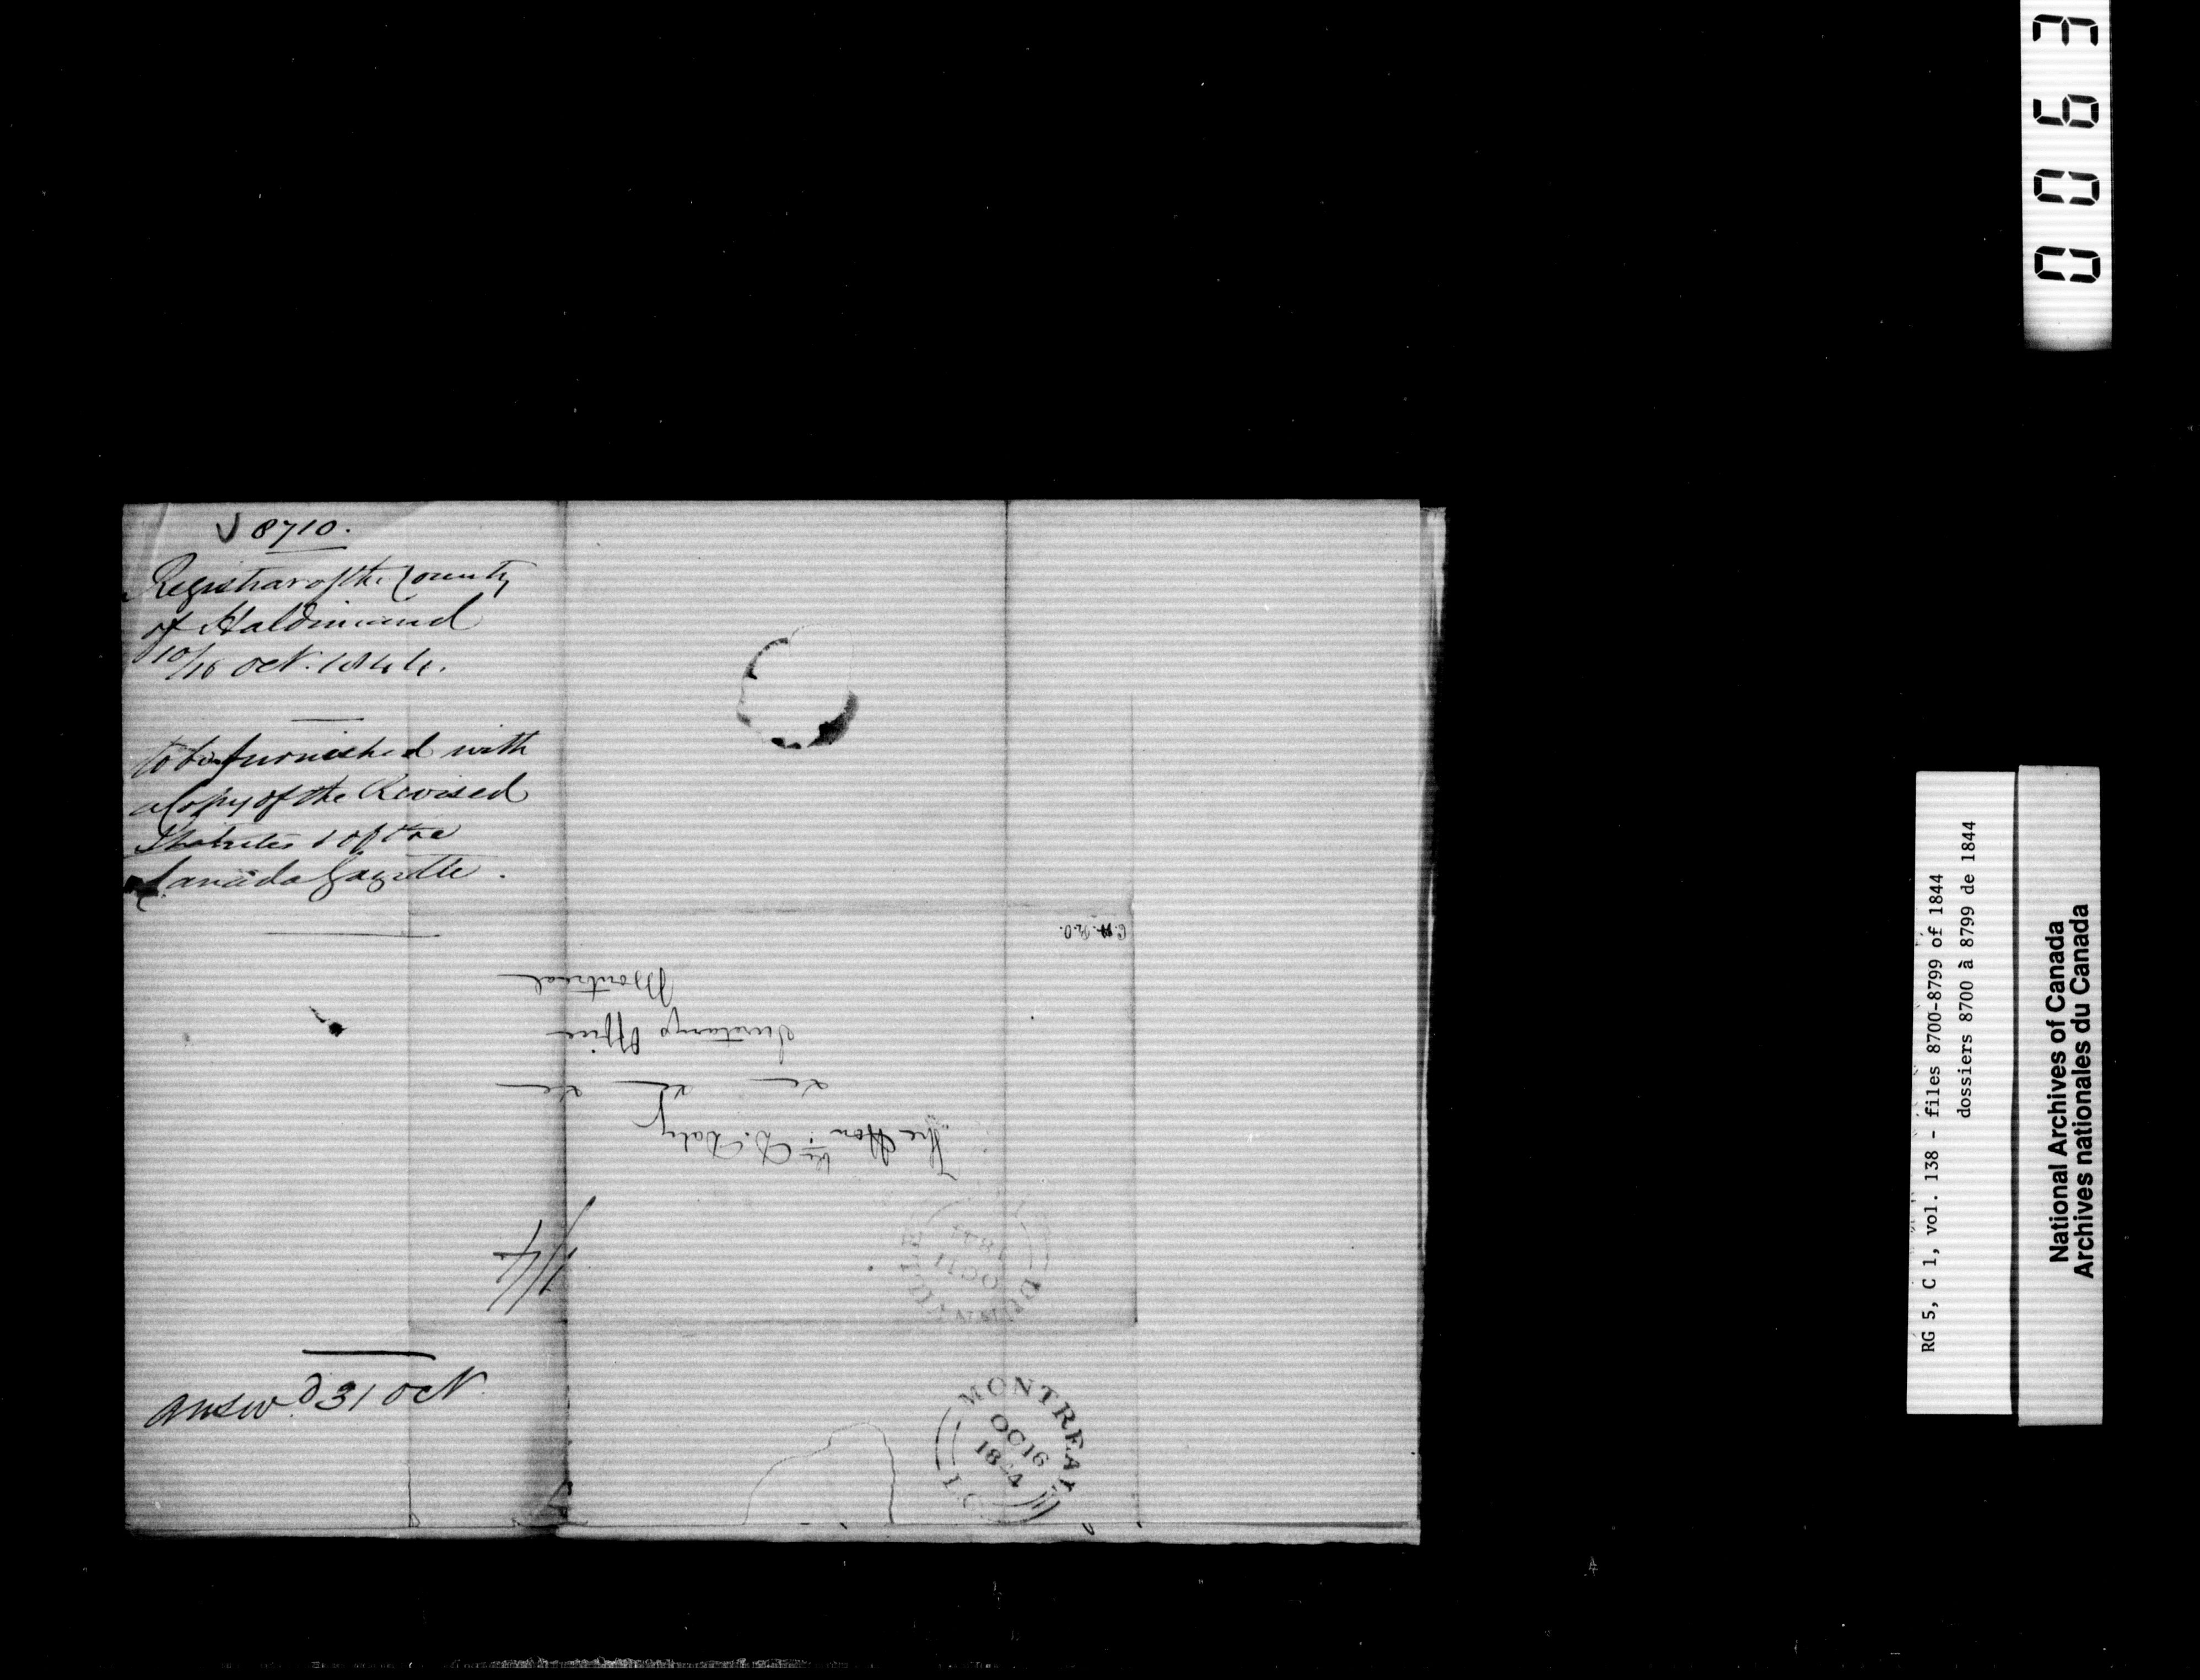 8710.
Registrar of the County
of Haldimand
10/16 Oct. 1844.
to be furnished with
a Copy of the Revised
Statutes & of the
Canada Gazette.
answd 31 Oct
C.H.R.O.
The Honble D. Daly
&c &c &c
Secretarys Office
Montreal
1/4
DUNNVILLE
OC 11
1844
MONTREAL
OC 16
1844
L.C.
0063
RG 5, C 1, vol. 138 - files 8700-8799 of 1844
dossiers 8700 à 8799 de 1844
National Archives of Canada
Archives nationales du Canada